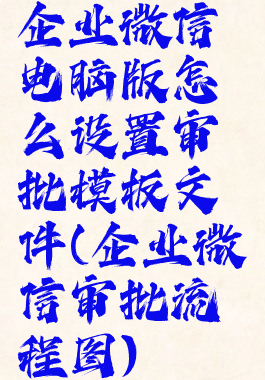 企业微信
电脑版怎
么设置审
批模板文
件(企业微
信审批流
程图)